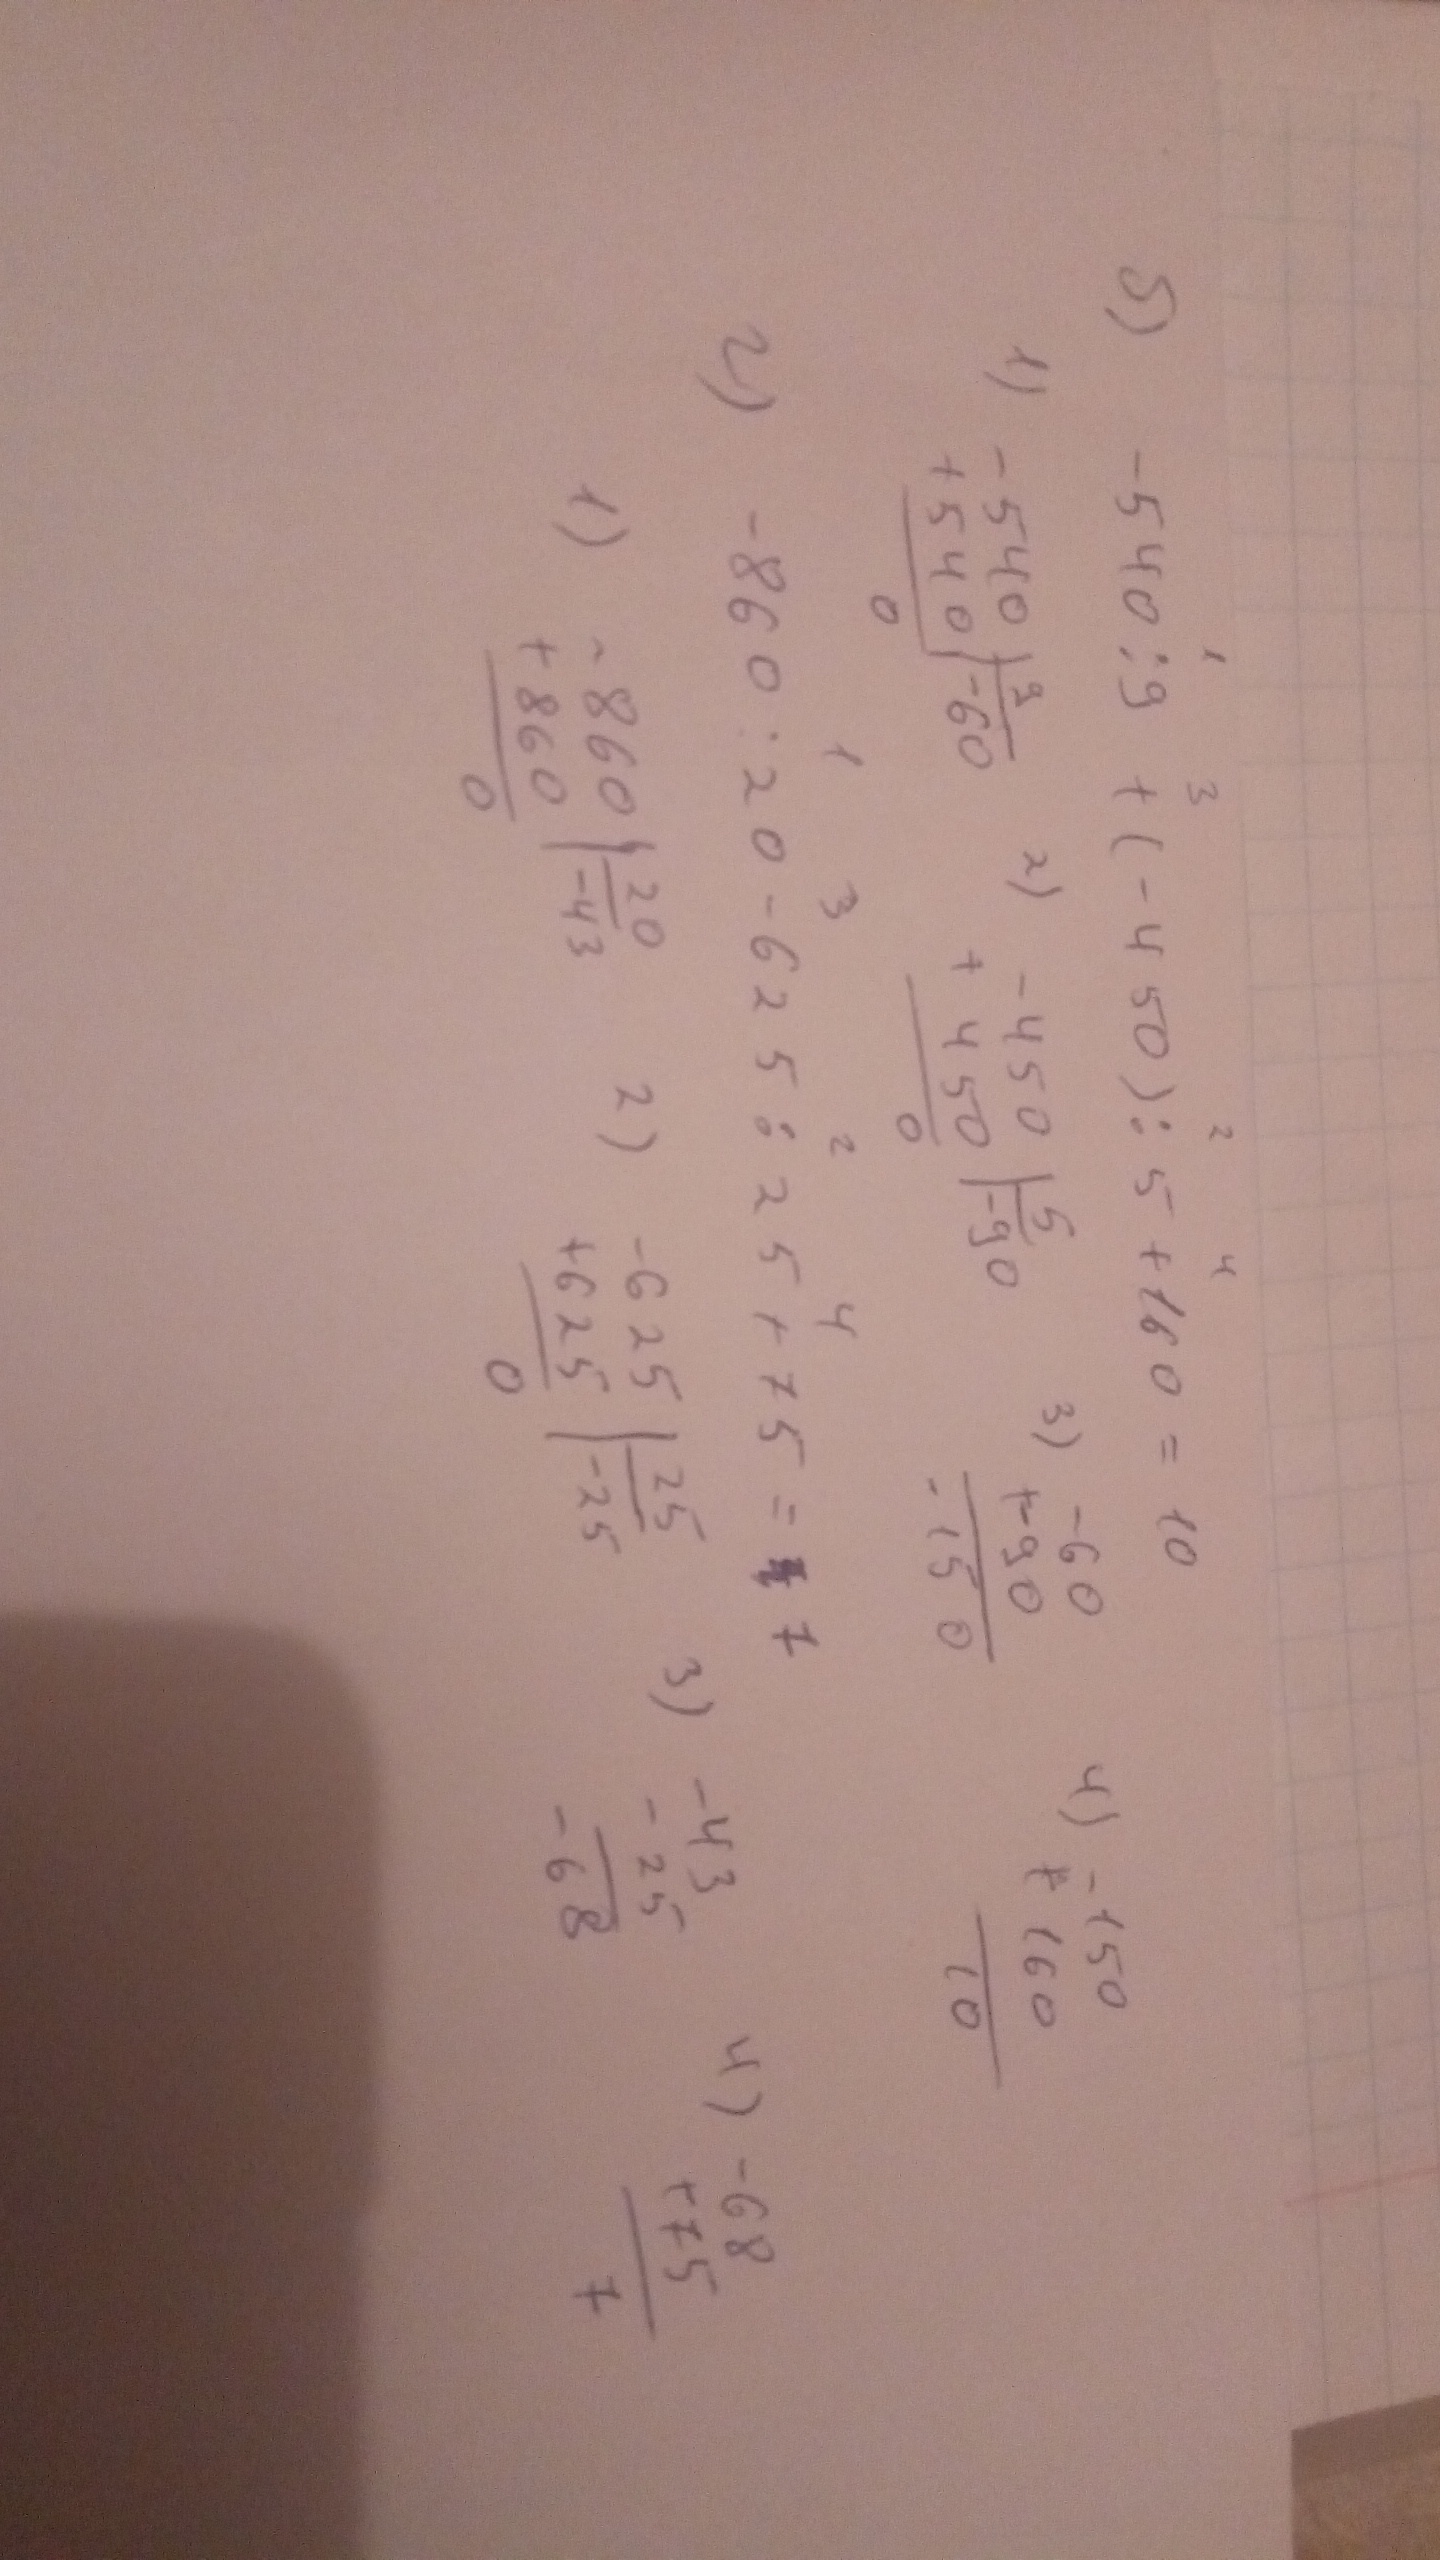 1 3 2 4
5) -540:9 + (-450):5+160 = 10
1) -540 |9 2) -450 |5 3) -60 4) -150
+540 |-60 + 450 |-90 +-90 +160
0 0 -150 10
1 3 2 4
2) -860:20-625:25+75= 7
1) -860 |20 2) -625 |25 3) -43 4) -68
+860 |-43 +625 |-25 -25 +75
0 0 -68 7